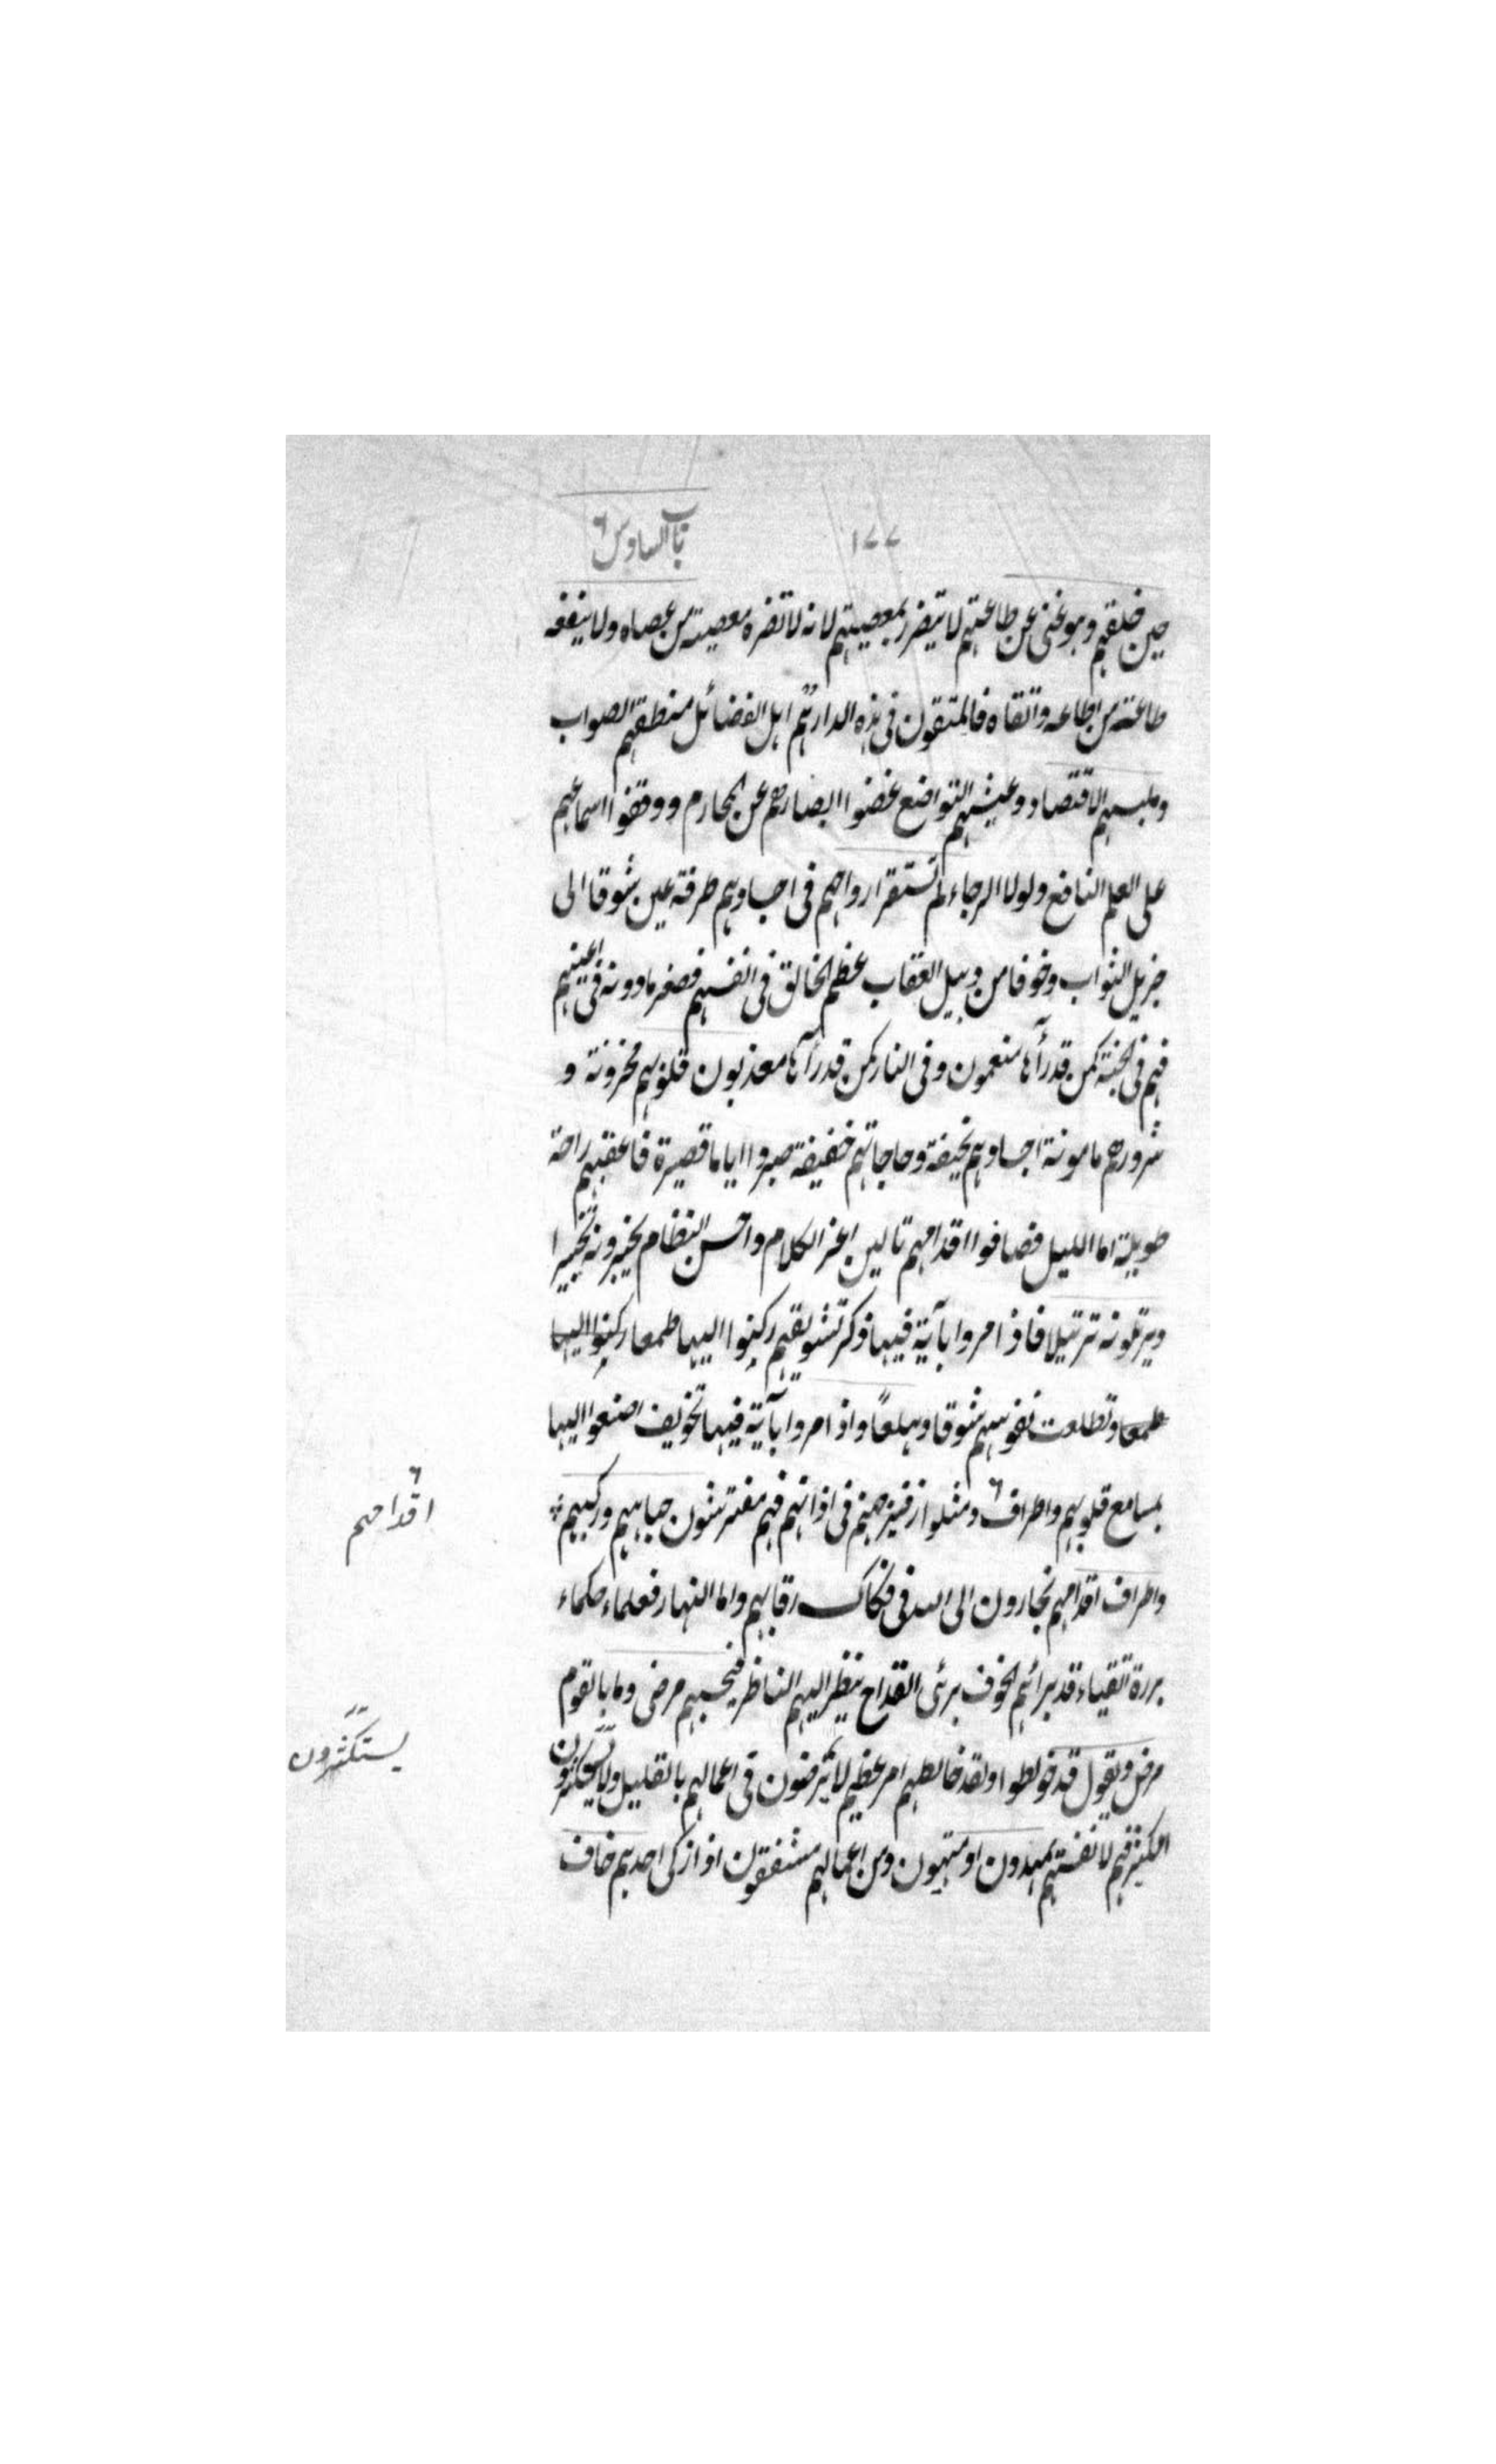 ١٧٧
باب السادس
حين خلقهم وهو غنى عن طاعتهم لا يتضرر بمعصيتهم لانه لا تضره معصيته من عصاه ولا ينفعه
طاعته من اطاعه واتقاه فالمتقون فى هذه الدار هم اهل الفضائل منطقهم الصواب
وملبسهم الاقتصاد وعيشهم التواضع غضوا ابصارهم عن المحارم ووقفوا اسماعهم
على العلم النافع ولولا الرجاء لم تستقر ارواحهم فى اجسادهم طرفة عين شوقا الى
جزيل الثواب وخوفا من وبيل العقاب عظم الخالق فى انفسهم فصغر ما دونه فى اعينهم
فهم فى الجنة كمن قد رآها منعمون وفى النار كمن قد رآها معذبون قلوبهم محزونة و
شرورهم مامونة اجسادهم نحيفة وحاجاتهم خفيفة صبروا اياما قصيرة فاعقبهم راحة
طويلة اما الليل فصافوا اقدامهم تالين اعز الكلام واحسن النظام يحبرونه تحبيرا
ويرتلونه ترتيلا فاذا مروا بآية فيها ذكر تشويقهم ركنوا اليها طمعا ركنوا اليها
طمعا وتطلعت نفوسهم شوقا وهلعًا واذا مروا بآية فيها تخويف اصغوا اليها
بمسامع قلوبهم واطراف ومثلوا زفير جهنم فى اذانهم فهم مفترشون جباههم وركبهم
اقدامهم
واطراف اقدامهم يجارون الى الله فى فكاك رقابهم واما النهار فعلماء حكماء
بررة اتقياء قد برائهم الخوف برئ القداح ينظر اليهم الناظر فيحسبهم مرضى وما بالقوم
مرض ويقول قد خولطوا ولقد خالطهم امر عظيم لا يرضون فى اعمالهم بالقليل ولا يستكثرون
يستكثرون
الكثير فهم لانفسهم يمهدون او متهمون ومن اعمالهم مشفقون اذا زكى احدهم خاف